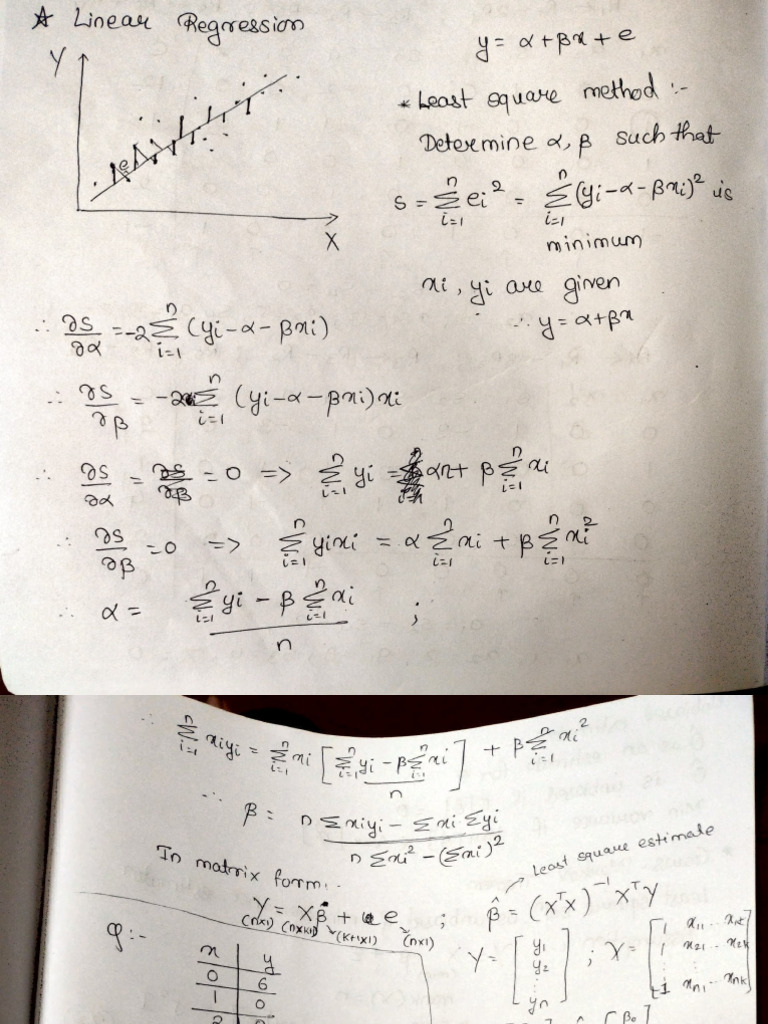 ☆ Linear Regression
Y
e
X
y = α + βx + e
* Least square method :-
Determine α, β such that
S = Σ_{i=1}^{n} ei² = Σ_{i=1}^{n} (yi - α - βxi)² is
minimum
xi, yi are given
∴ y = α + βx
∴ ∂S/∂α = -2 Σ_{i=1}^{n} (yi - α - βxi)
∴ ∂S/∂β = -2 Σ_{i=1}^{n} (yi - α - βxi) xi
∴ ∂S/∂α = 0 => Σ_{i=1}^{n} yi = αn + β Σ_{i=1}^{n} xi
∴ ∂S/∂β = 0 => Σ_{i=1}^{n} yixi = α Σ_{i=1}^{n} xi + β Σ_{i=1}^{n} xi²
∴ α = (Σ_{i=1}^{n} yi - β Σ_{i=1}^{n} xi) / n ;
∴ Σ_{i=1}^{n} xiyi = Σ_{i=1}^{n} xi [(Σ_{i=1}^{n} yi - β Σ_{i=1}^{n} xi) / n] + β Σ_{i=1}^{n} xi²
∴ β = (n Σxiyi - Σxi · Σyi) / (n Σxi² - (Σxi)²)
In matrix form :-
Least square estimate
Y = Xβ + e ; β̂ = (XᵀX)⁻¹ XᵀY
(n×1) (k+1×1) (n×1)
Y = [y1 y2 ⋮ yn] ; X = [1 x11 ... x1k
1 x21 ... x2k
⋮
1 xn1 ... xnk]
Q :-
x | y
0 | 6
1 | 0
2
β0